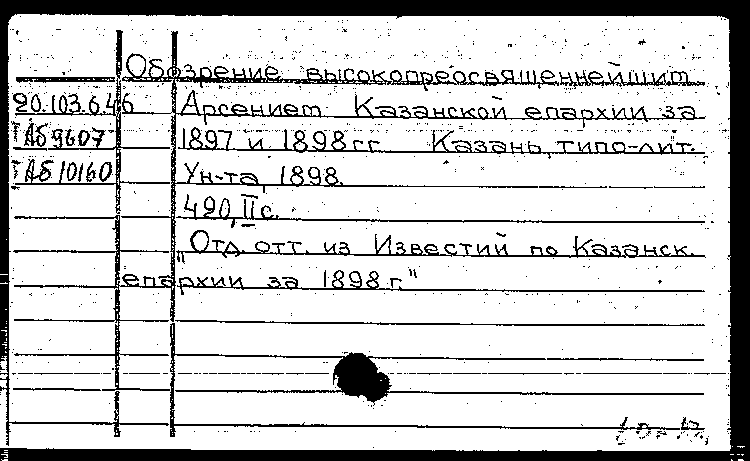 Обозрение высокопреосвященнейшим
20.103.6.46 Арсением Казанской епархии за
TAБ 9607 1897 и 1898 гг. Казань, типо-лит.
TAБ 10160 Ун-та, 1898.
490, II с.
"Отд. отт. из Известий по Казанск.
епархии за 1898 г."